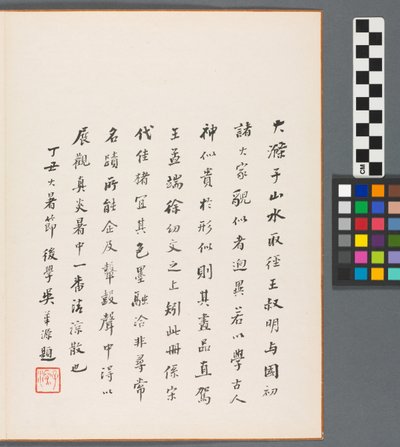 大滌子山水取徑王叔明与國初
諸大家貌似者迥異若以學古人
神似貴於形似則其畫品直駕
王孟端徐幼文之上矧此冊係宋
代佳楮宜其色墨融洽非尋常
名蹟所能企及鼙鼓聲中得以
展觀真炎暑中一番清涼散也
丁丑大暑節後學吳華源題
CM